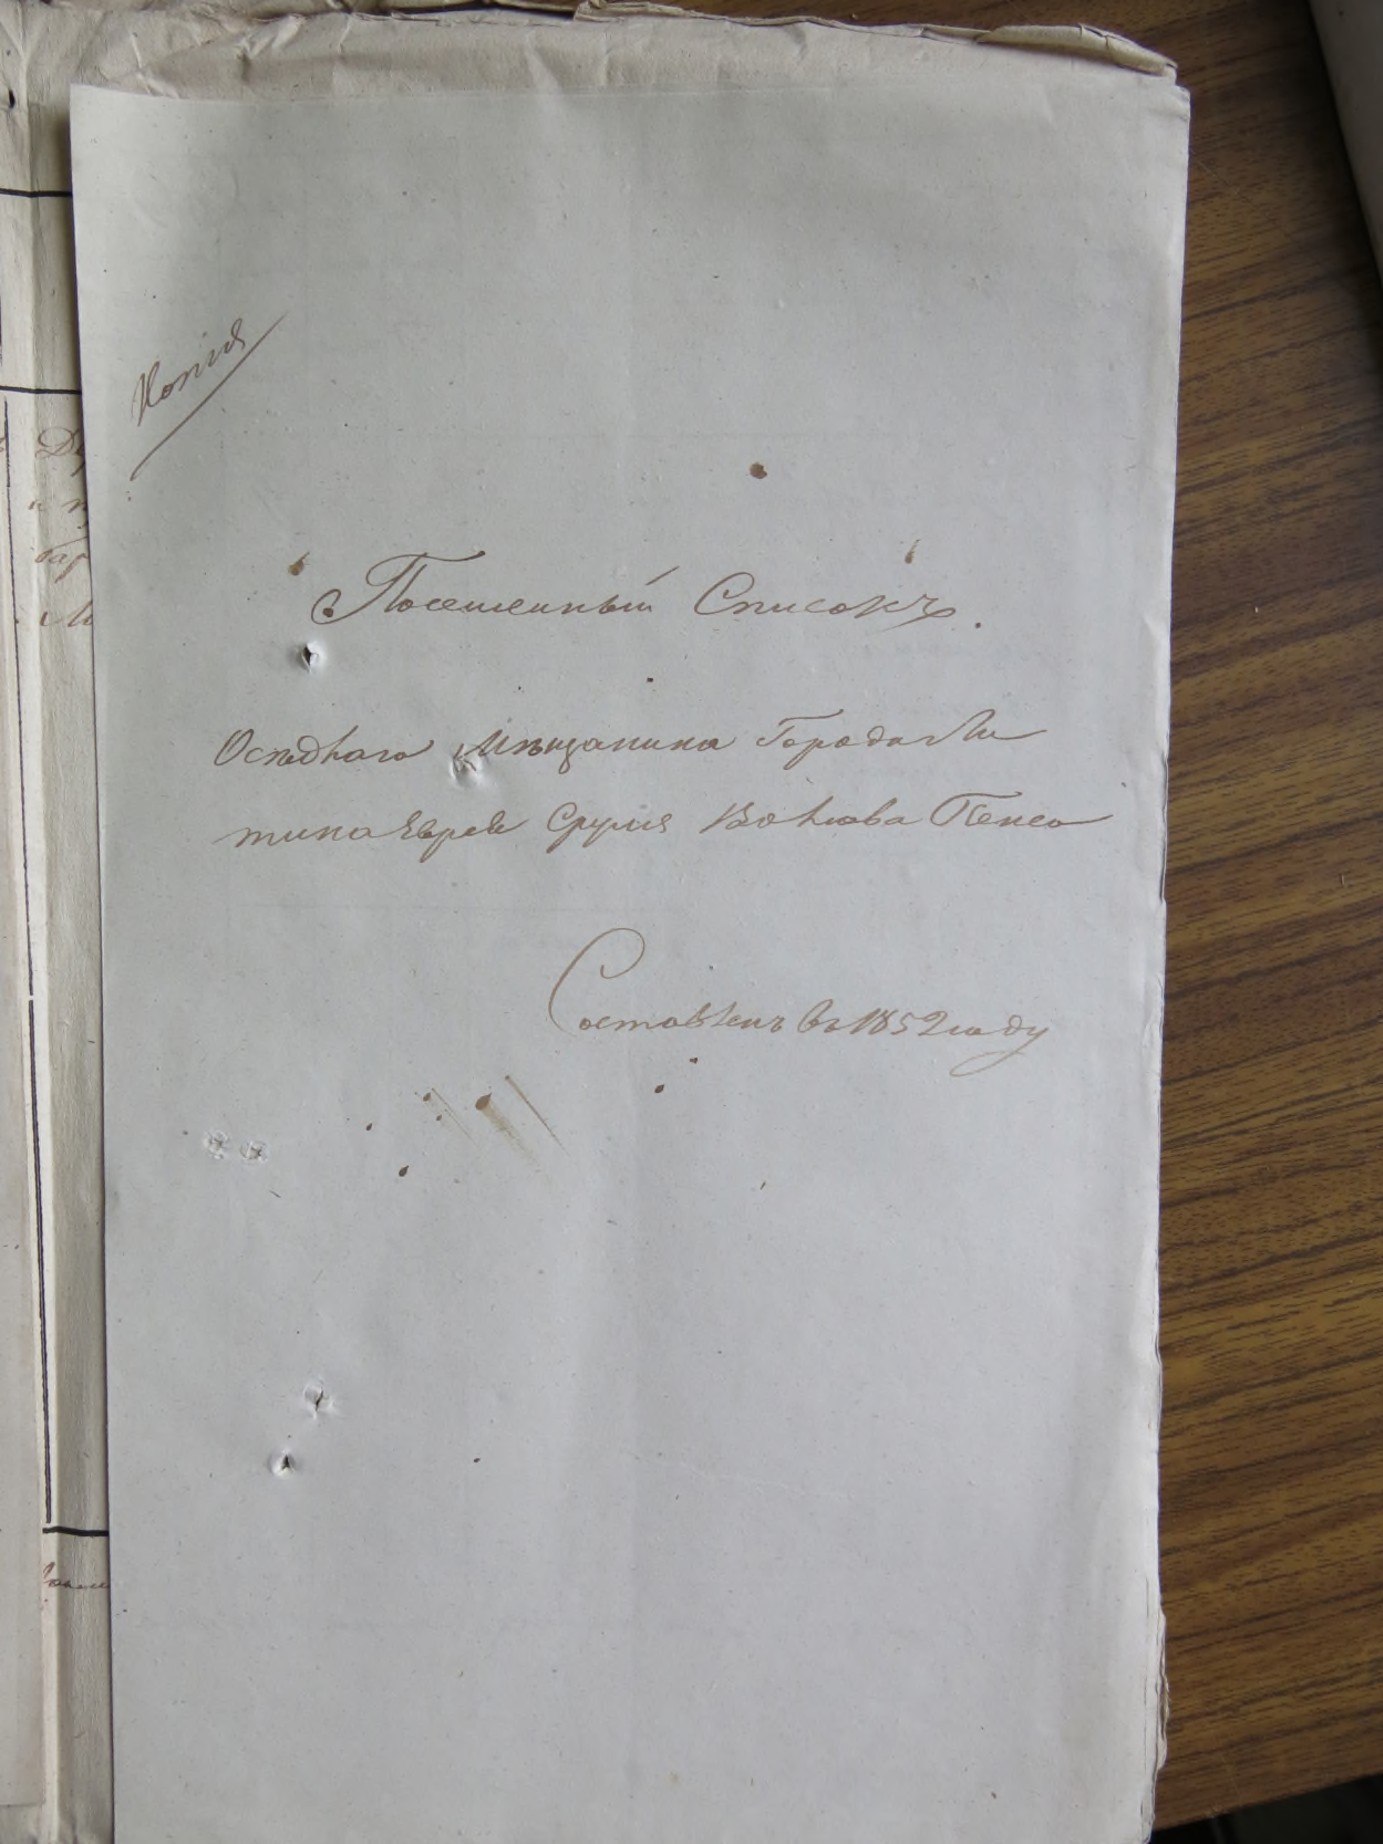 Копія
Посемейный Списокъ.
Осѣдлаго Мѣщанина Города Ли
тина Еврея Сруля Волкова Пенса
Составленъ въ 1852 году